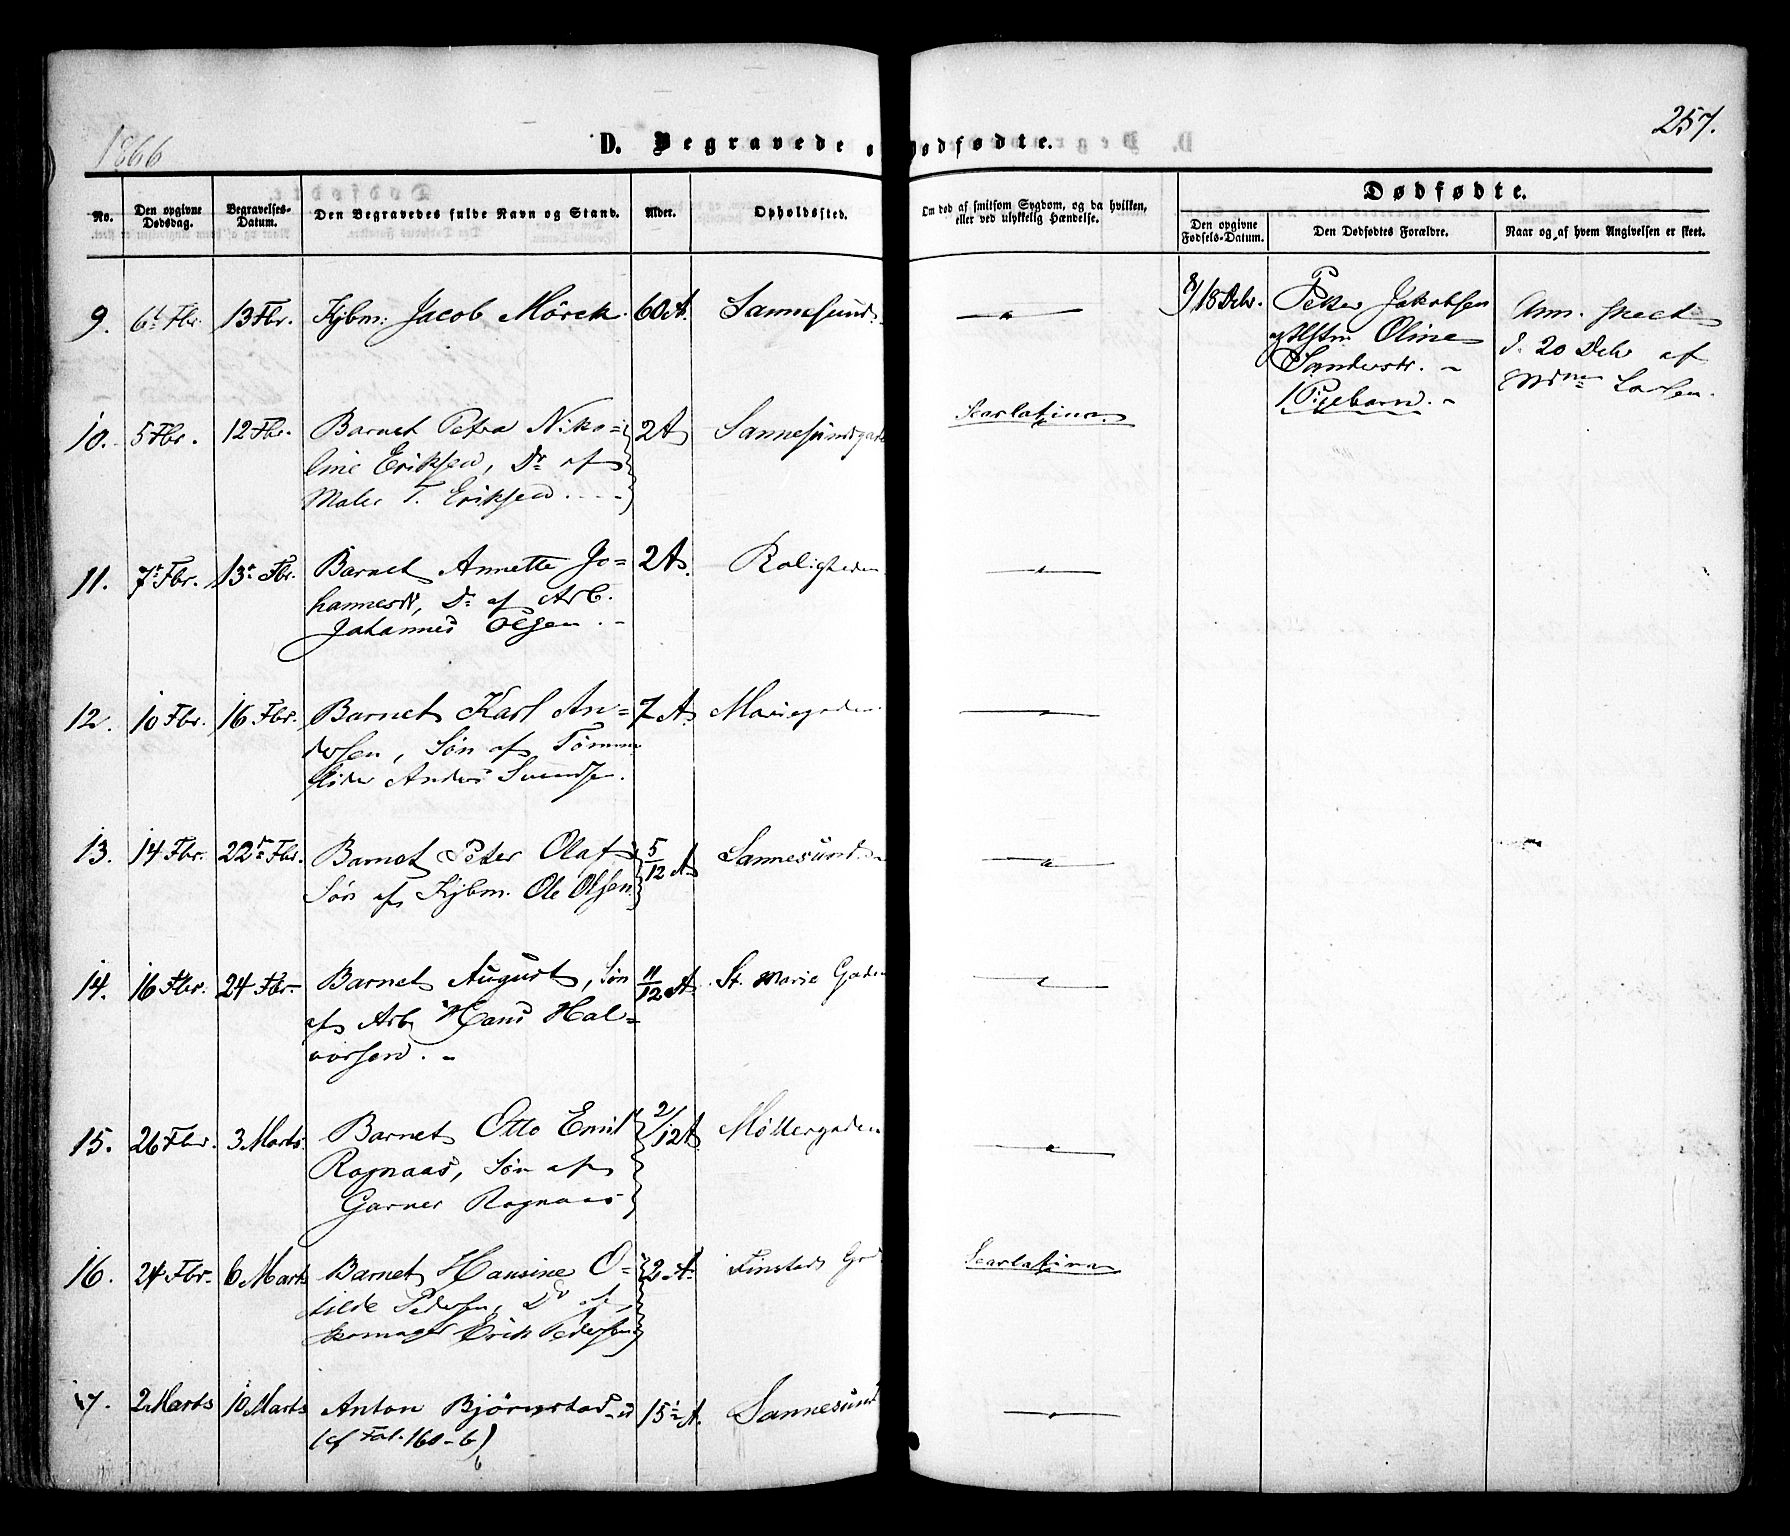 1866
257.
D. Begravede o
ødfødte.
No.
Den opgivne Dødsdag.
Begravelses-Datum.
Den Begravedes fulde Navn og Stand.
Alder.
Opholdssted.
Om død af smitsom Sygdom, og da hvilken,
eller ved ulykkelig Hændelse.
Dødfødte.
Den opgivne Fødsels-Datum.
Den Dødfødtes Forældre.
Naar og af hvem Angivelsen er skeet.
9. 6t Fbr. 13 Fbr. Kjbm. Jacob Mörck. 60 A. Sannesund
18 Debr. Peter Jakobsen
og Hstr. Oline
Sanderstr.
1 Pigebarn.
Anm. skeet
d. 20 Debr af
Mdm Larsen.
10. 5 Fbr. 12 Fbr. Barnet Petra Niko=
line Eriksen, Dr. af
Maler T. Eriksen
2 A. Sannesundsgade
Scarlatina
11. 7t Fbr. 13t Fbr. Barnet Annette Jo=
hannesdr, Dr. af Arb.
Johannes Olsen.
2 A. Roligheden
12. 10 Fbr. 16 Fbr. Barnet Karl An=
dersen, Søn af Tømm
Anders Svendsen.
7 A. Mariegaden
13. 14 Fbr. 22d Fbr. Barnet Peter Olaf
Søn af Kjbm. Ole Olsen
5/12 A. Sannesund
14. 16 Fbr. 24 Fbr. Barnet August, Søn
af Arb. Hans Hal=
vorsen.
11/12 A. St. Marie Gaden
15. 26 Fbr. 3 Marts. Barnet Otto Emil
Rognaas, Søn af
Garver Rognaas
2/12 A. Möllergaden
16. 24 Fbr. 6 Marts Barnet Hansine O=
tilde Pedersen, Dr af
Skomager Erik Pedersen
2 A.
Scarlatina
17. 2 Marts 10 Marts Anton Björnstad
(cf Fol. 160-b)
15 A. Sannesund